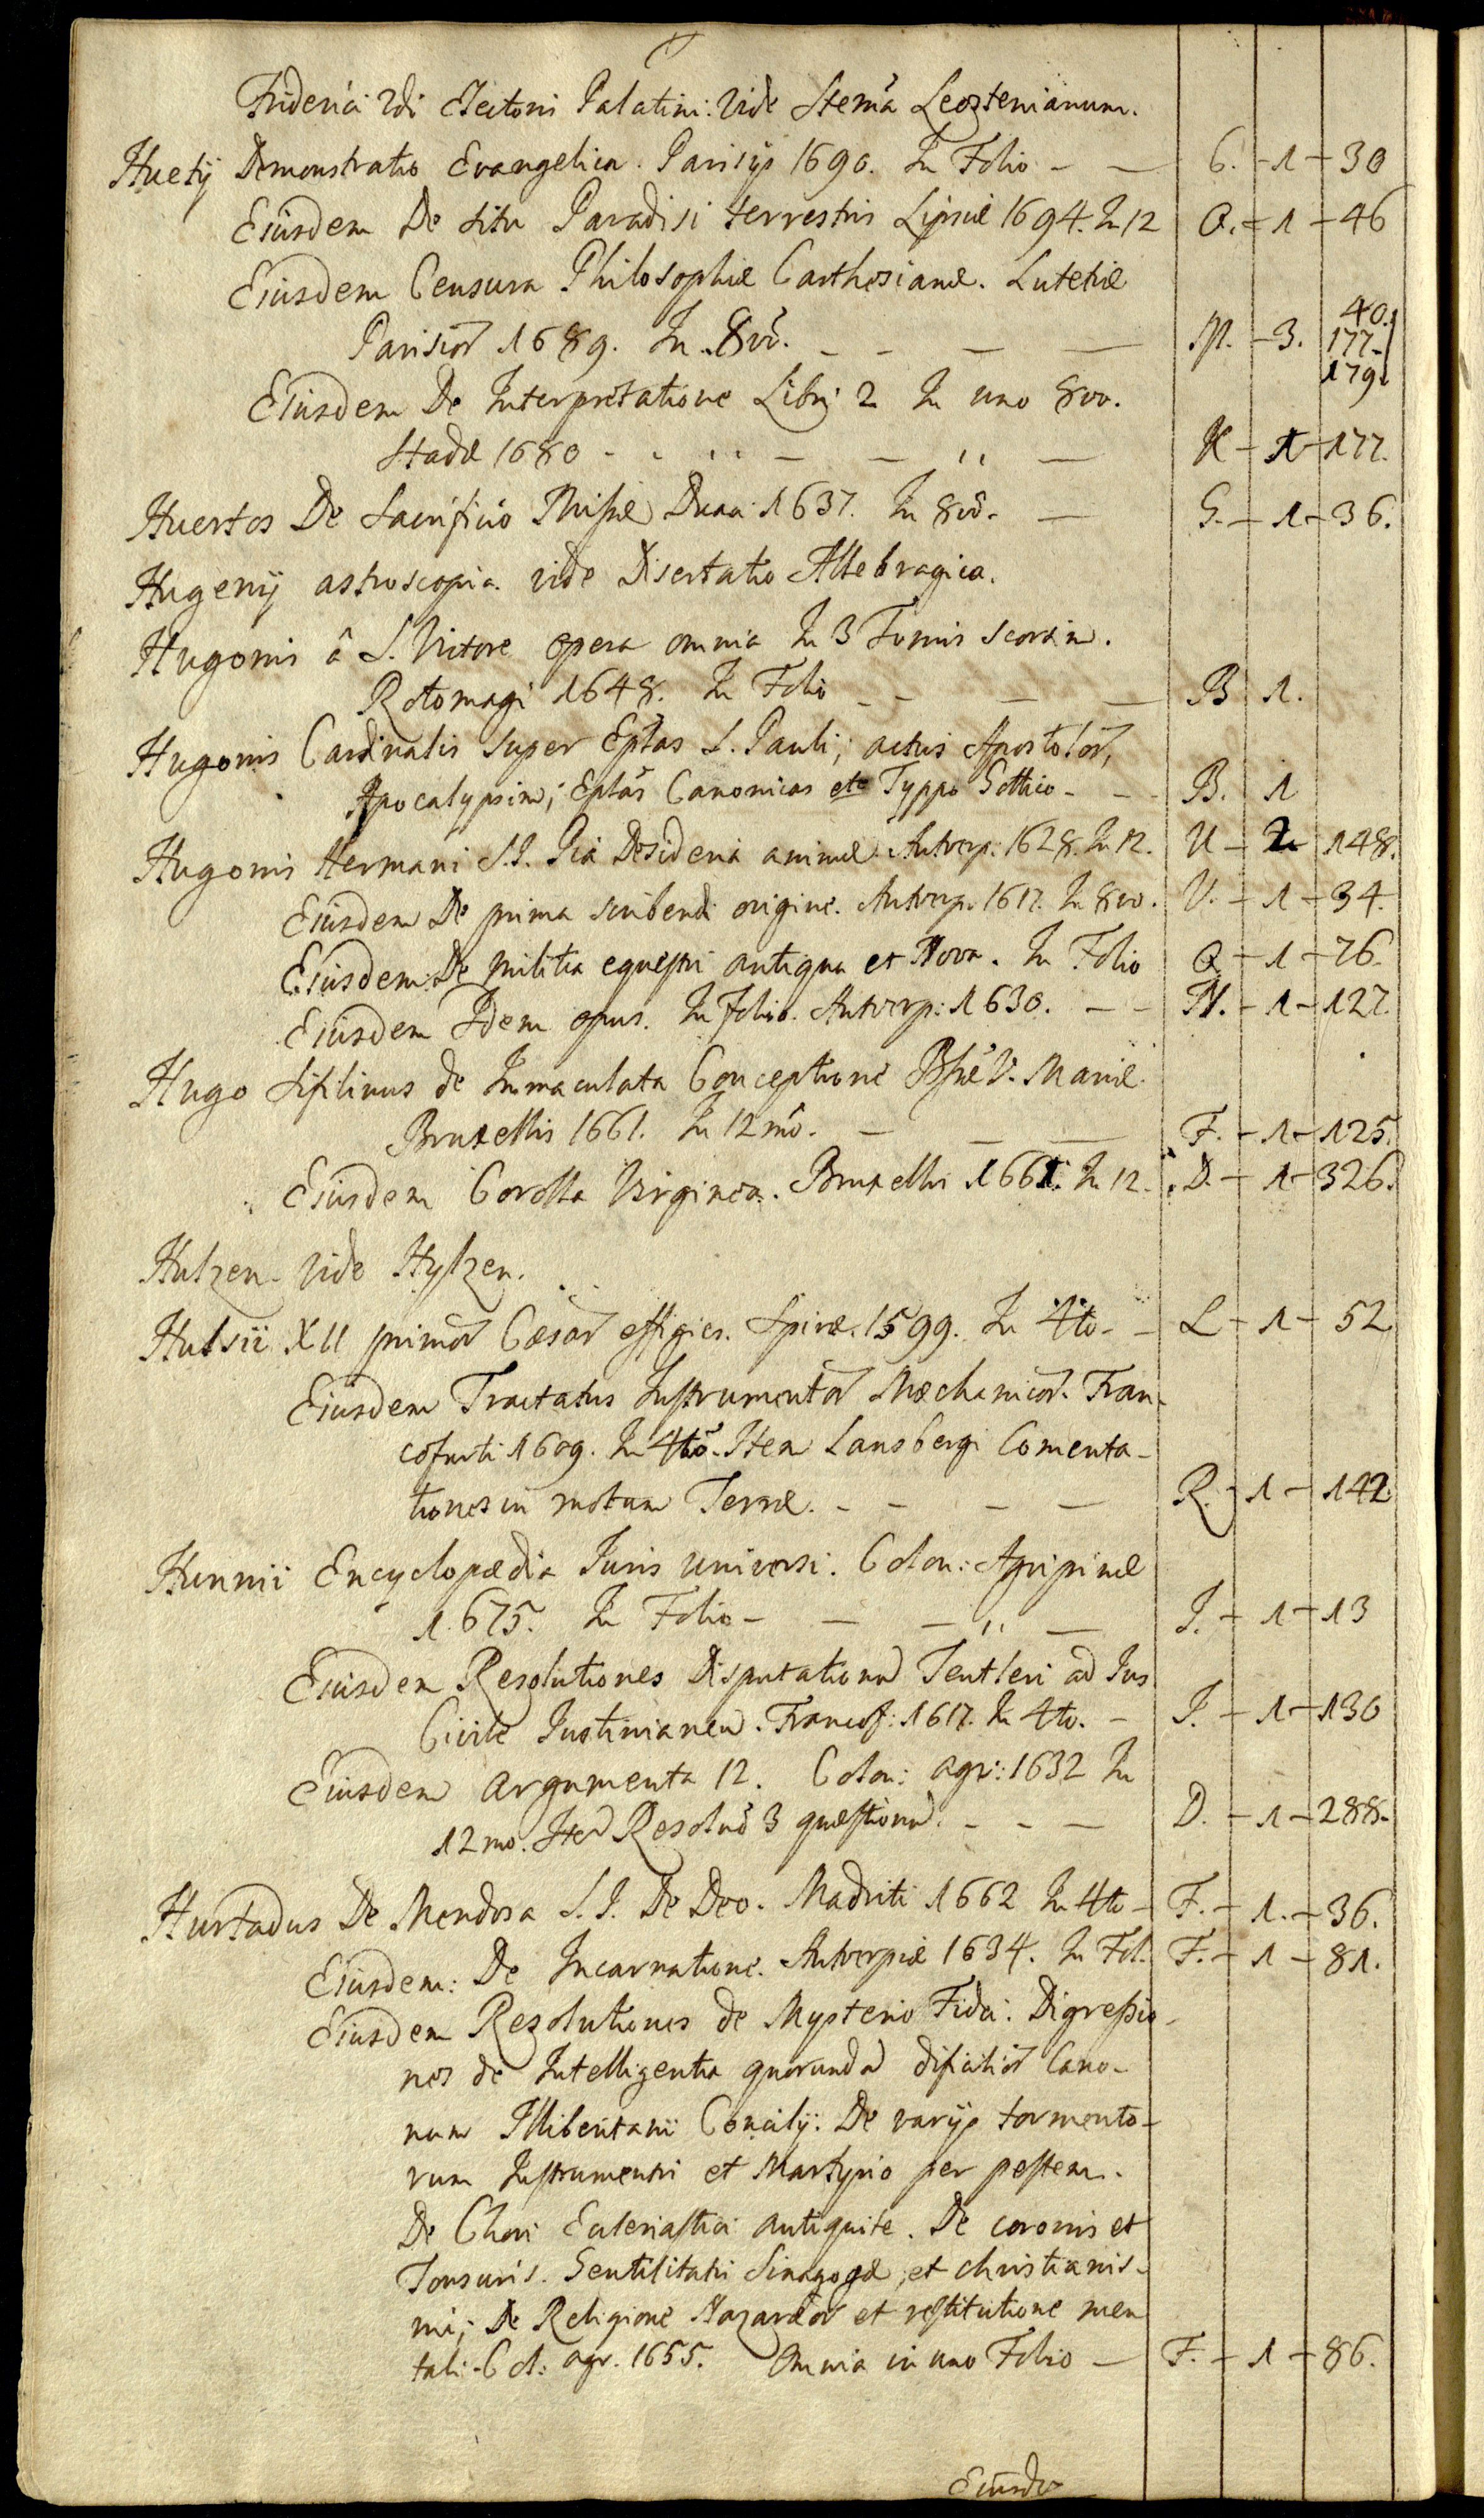 Friderici 2di Electoris Palatini: Vide Stema Leostenianum.
Huetij Demonstratio Evangelica. Parisijs 1690. In Folio - — C. - 1 - 30
Eiusdem De Situ Paradisi terrestris Lipsiæ 1694. In 12 O. - 1 - 46
Eiusdem Censura Philosophiæ Carthesianæ. Lutetiæ
Parisior 1689. In 8vô. - - — — M. - 3. 40. 177. 179.
Eiusdem De Interpretatione Libri 2 In uno 8vo.
Stadæ 1680 - - - - — — — K - 1 - 177.
Huertos De Sacrificio Missæ Duaci 1637. In 8vô. — G. - 1 - 36.
Hugenij astroscopia vide Disertatio Allebragica.
Hugonis â S. Victore opera omnia In 3 Tomis seorsim.
Rotomagi 1648. In Folio - - — — B 1.
Hugonis Cardinalis super Eptas S. Pauli; actus Apostolor,
Apocalypsim; Eptas Canonicas etc Typpo Gothico - - - B. 1
Hugonis Hermani S.J. Pia Desideria animæ. Antverp: 1628. In 12. U - 2 - 148.
Eiusdem De prima scribendi origine. Antverp. 1617. In 8vo. V. - 1 - 34.
Eiusdem: De militia equestri antiqua et Nova. In Folio Q - 1 - 76.
Eiusdem Idem opus. In folio. Antverp: 1630. - - N. - 1 - 127.
Hugo Sifilinus de Immaculata Conceptione Bssæ V. Mariæ.
Bruxellis 1661. In 12mô. - — — F. - 1 - 125.
Eiusdem Corolla Virginea. Bruxellis 1661. In 12. D. - 1 - 326.
Hulzen. vide Hylzen.
Hulsii XII primor Cæsar effigies. Spiræ. 1599. In 4to - - L - 1 - 52
Eiusdem Tractatus Instrumentor Mechanicor. Fran-
cofurti 1609. In 4tô. Item Lansbergi Comenta-
tiones in motum Terræ. - - - — R. - 1 - 142
Hunnii Encyclopædia Juris universi. Colon: Agripinæ
1675. In Folio - — — — J. - 1 - 13
Eiusdem Resolutiones Disputationu Teutleri ad Jus
Civile Justinianeu. Francof: 1617. In 4to. - J. - 1 - 130
Eiusdem Argumenta 12. Colon: agr: 1632 In
12mo. Ite Resolut 3 quæstionu. - - — D. - 1 - 288.
Hurtadus De Mendosa S.J. De Deo. Madriti 1662 In 4to - F. - 1. - 36.
Eiusdem: De Incarnatione. Antverpiæ 1634. In Fol. F. - 1 - 81.
Eiusdem Resolutiones de Mysterio Fidei. Digressio-
nes de Intelligentia quorunda dificilior Cano-
num Illiberitani Concilij. De varijs tormento-
rum Instrumentis et Martyrio per pestem.
De Chori Eclesiastici antiquite. De coronis et
Tonsuris. Gentilitatis Sinagogæ, et christianis-
mi; De Religione Nazaræor et restitutione men
tali. Col: agr. 1655. Omnia in uno Folio — F. - 1 - 86.
Eiusde